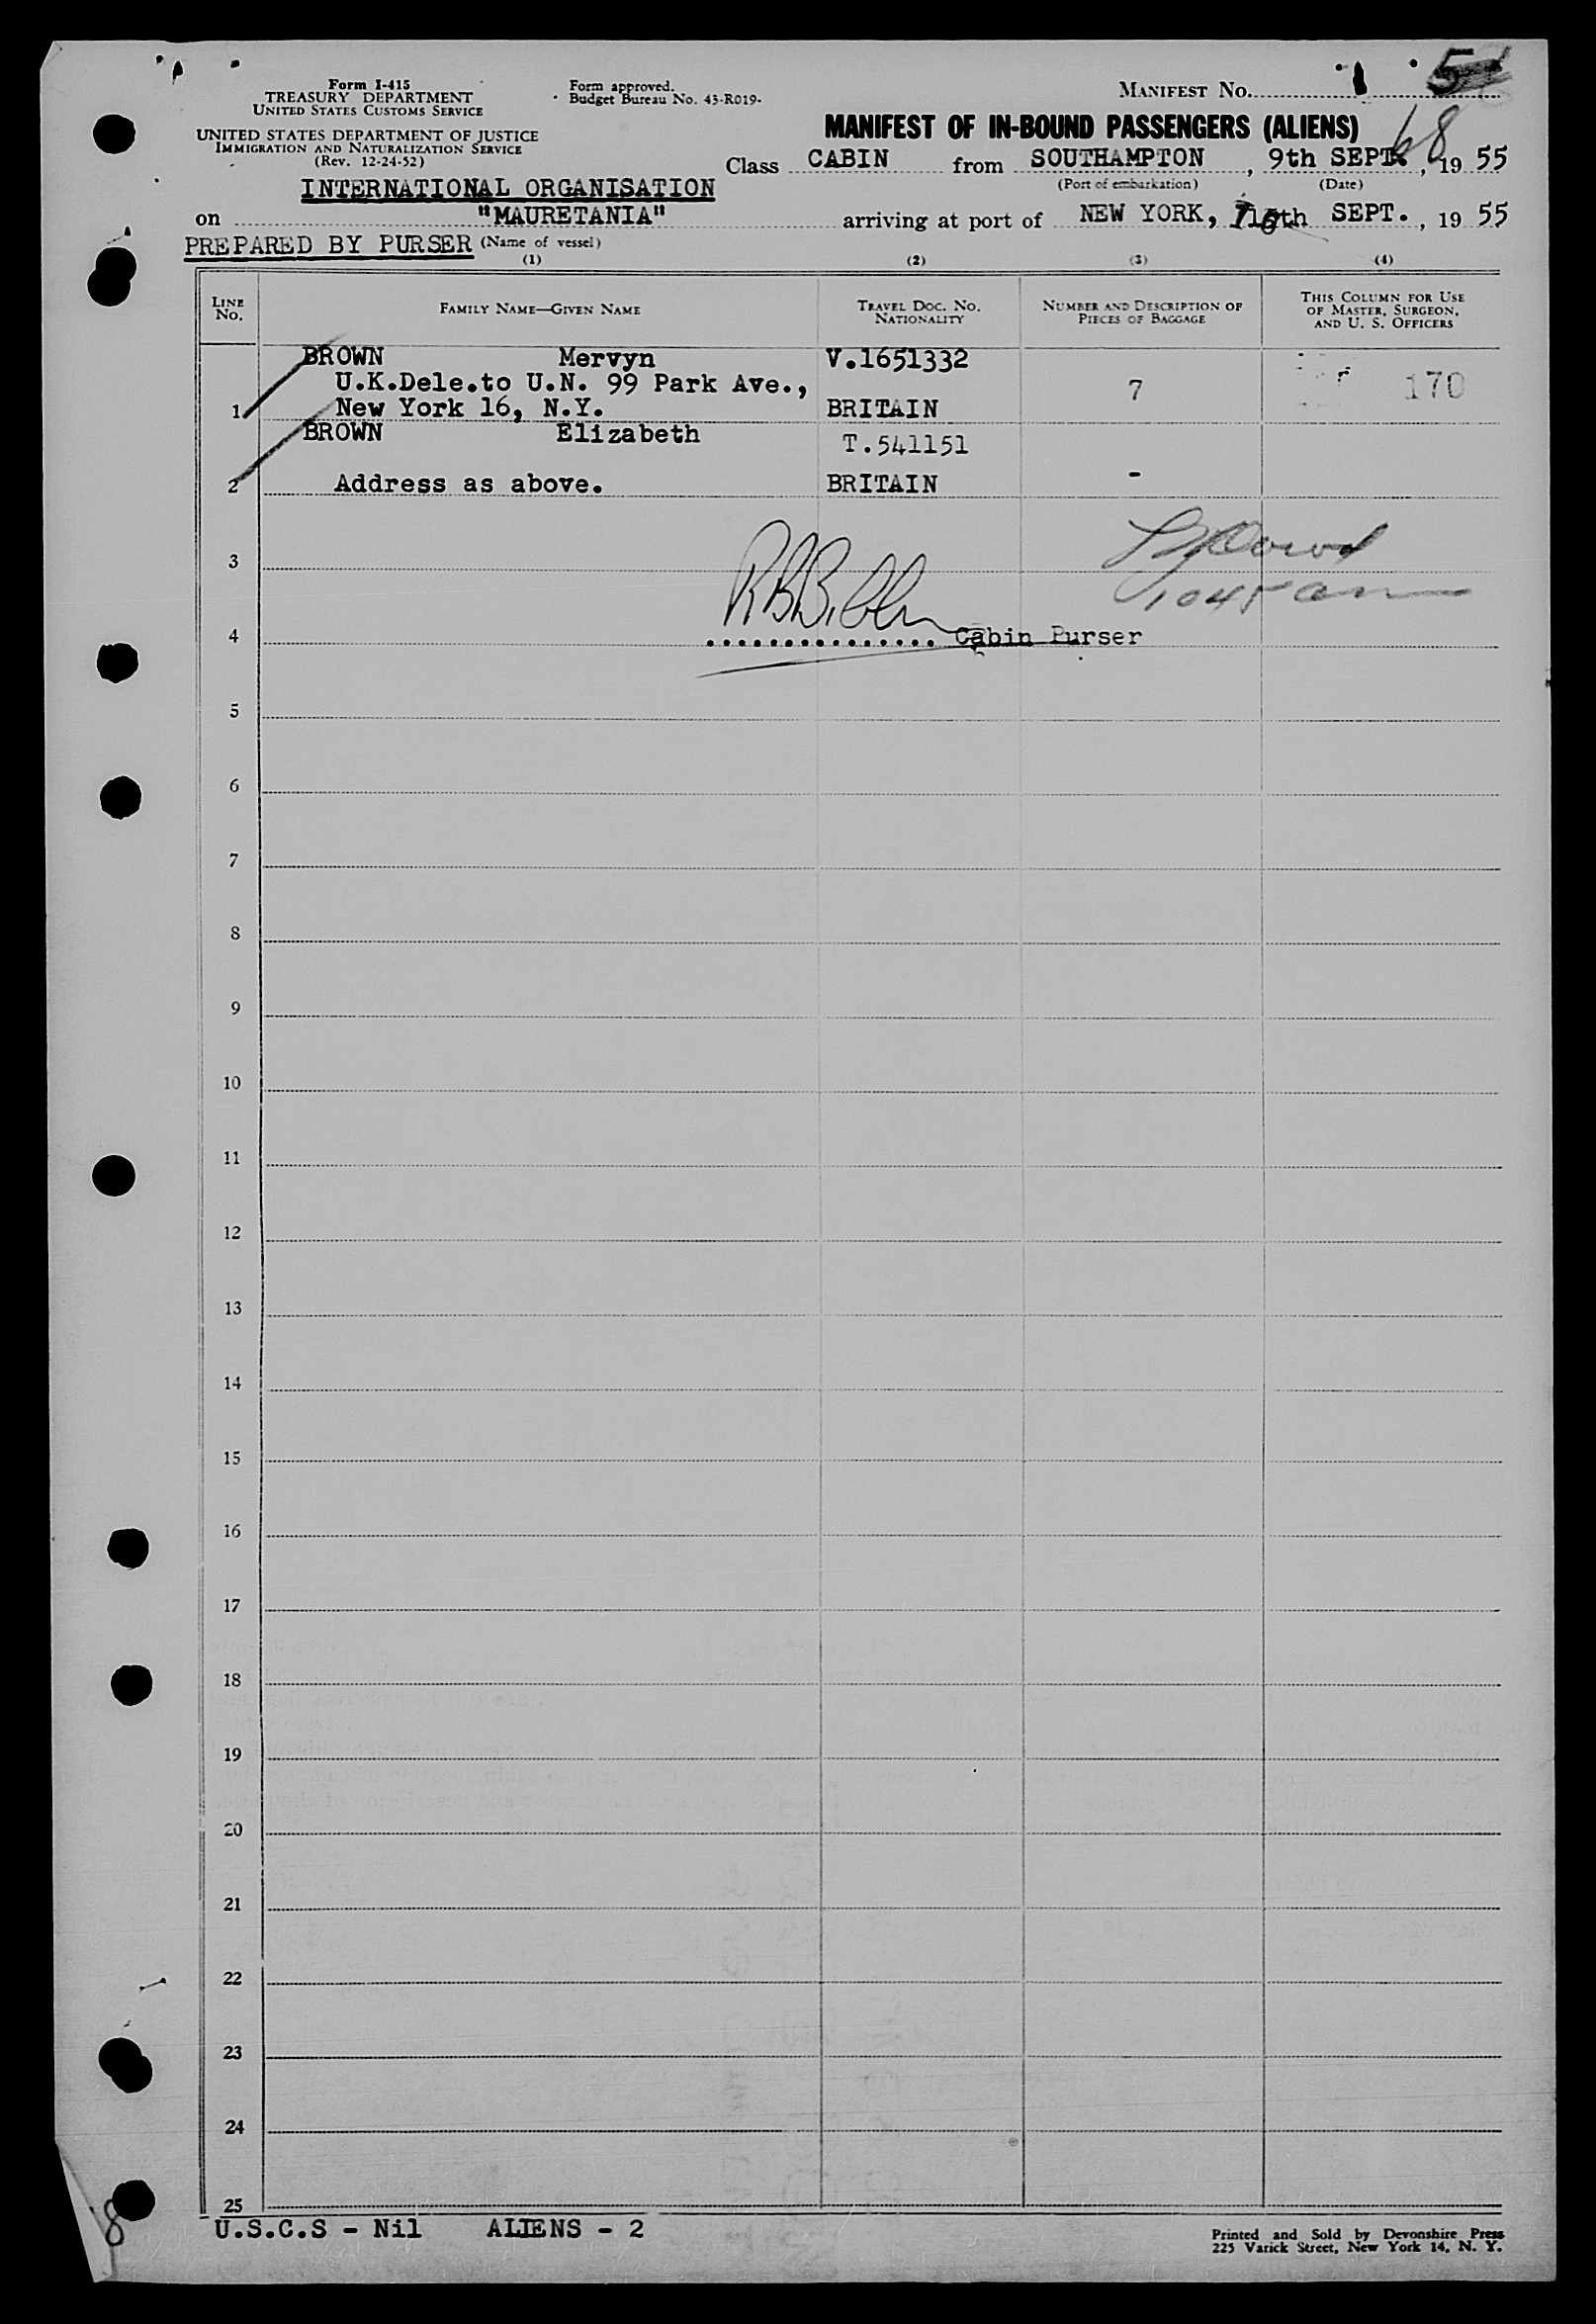 Form I-415
TREASURY DEPARTMENT
UNITED STATES CUSTOMS SERVICE
UNITED STATES DEPARTMENT OF JUSTICE
IMMIGRATION AND NATURALIZATION SERVICE
(Rev. 12-24-52)
Form approved.
Budget Bureau No. 43-R019.
MANIFEST NO. 1 5
MANIFEST OF IN-BOUND PASSENGERS (ALIENS)
68
Class CABIN from SOUTHAMPTON, 9th SEPT., 1955
(Port of embarkation) (Date)
INTERNATIONAL ORGANISATION
on "MAURETANIA" arriving at port of NEW YORK, SEPT., 1955
PREPARED BY PURSER (Name of vessel)
(1) (2) (3) (4)
LINE NO. FAMILY NAME—GIVEN NAME TRAVEL DOC. NO. NATIONALITY NUMBER AND DESCRIPTION OF PIECES OF BAGGAGE THIS COLUMN FOR USE OF MASTER, SURGEON, AND U. S. OFFICERS
BROWN Mervyn V.1651332
U.K.Dele.to U.N. 99 Park Ave., 7 170
1 New York 16, N.Y. BRITAIN
BROWN Elizabeth T.541151
2 Address as above. BRITAIN -
3
1045 am
4 Cabin Purser
5
6
7
8
9
10
11
12
13
14
15
16
17
18
19
20
21
22
23
24
25
U.S.C.S - Nil ALIENS - 2
8
Printed and Sold by Devonshire Press
225 Varick Street, New York 14, N. Y.